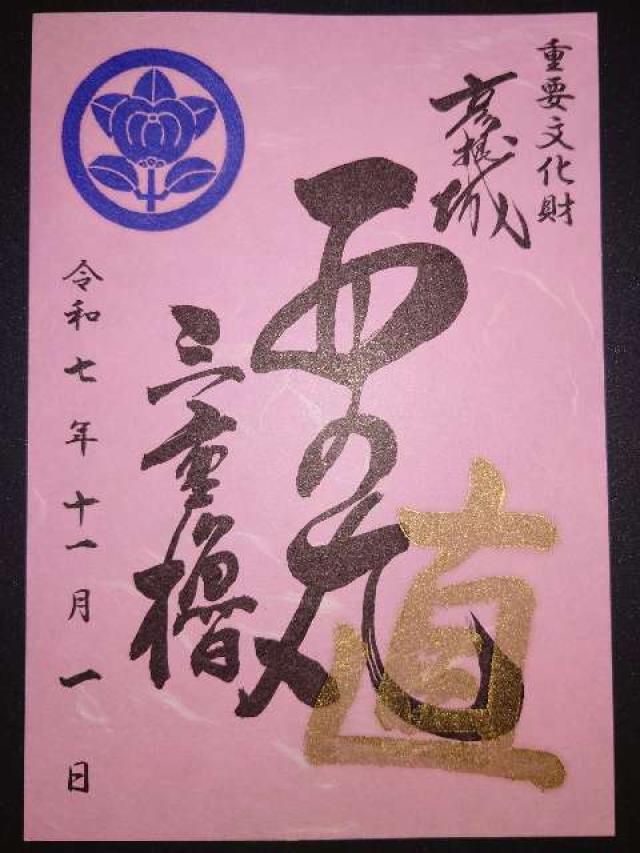 重要文化財
彦根城
西の丸
直
三重櫓
令和七年十一月一日